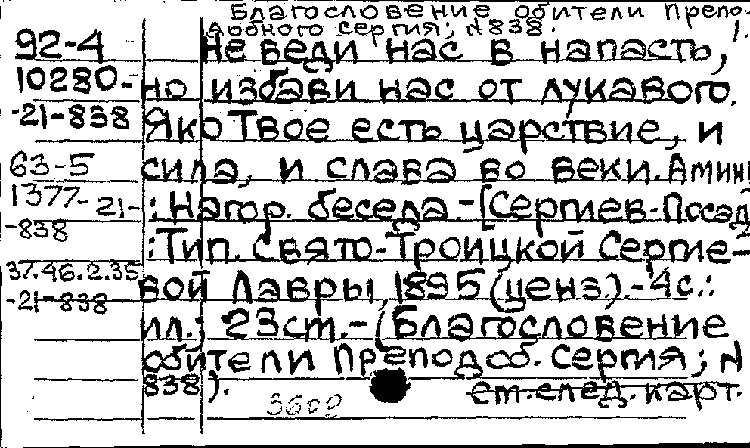 Благословение обители Препо-
добного Сергия; N 838. 1.
92-4 не веди нас в напасть,
10280- но избави нас от лукавого.
-21-838 Яко Твое есть царствие, и
63-5 сила, и слава во веки. Аминь
1377-21- : Нагор. беседа. - [Сергиев-Посад
-838 : Тип. Свято-Троицкой Сергие-
37.46.2.35 вой Лавры, 1895 (ценз). - 4с.:
-21-838 ил.; 23см. - (Благословение
обители Преподоб. Сергия; N
838).
3609 см. след. карт.